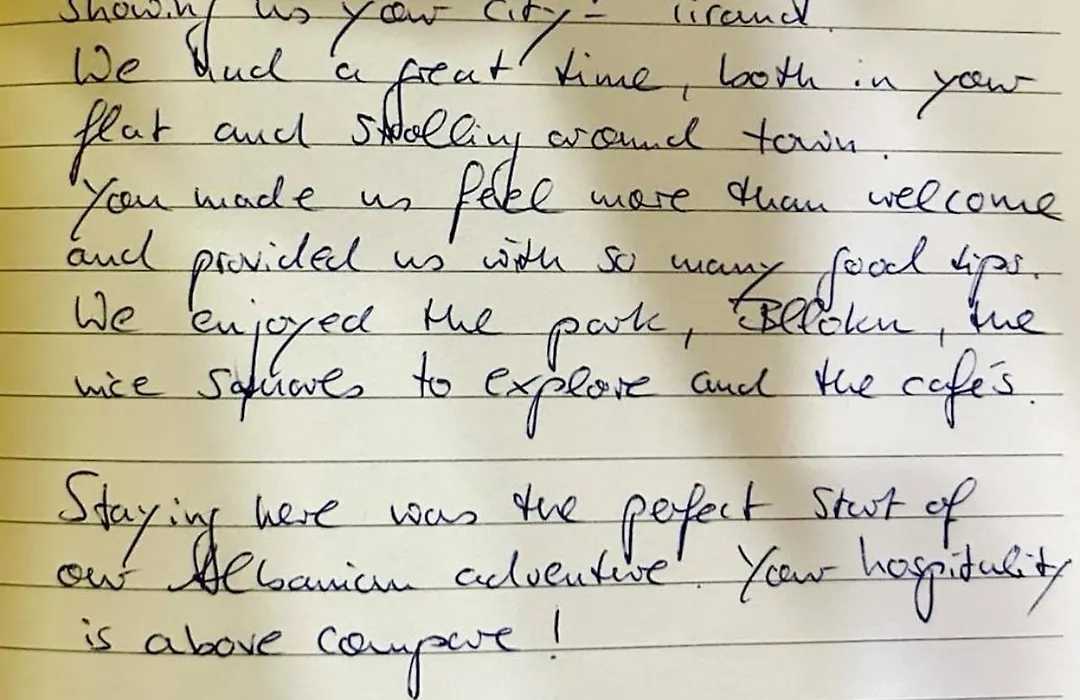 showing us your city - Tirana.
We had a great time, both in your
flat and strolling around town.
You made us feel more than welcome
and provided us with so many good tips.
We enjoyed the park, Blloku, the
nice squares to explore and the cafés.
Staying here was the perfect start of
our Albanian adventure. Your hospitality
is above compare!